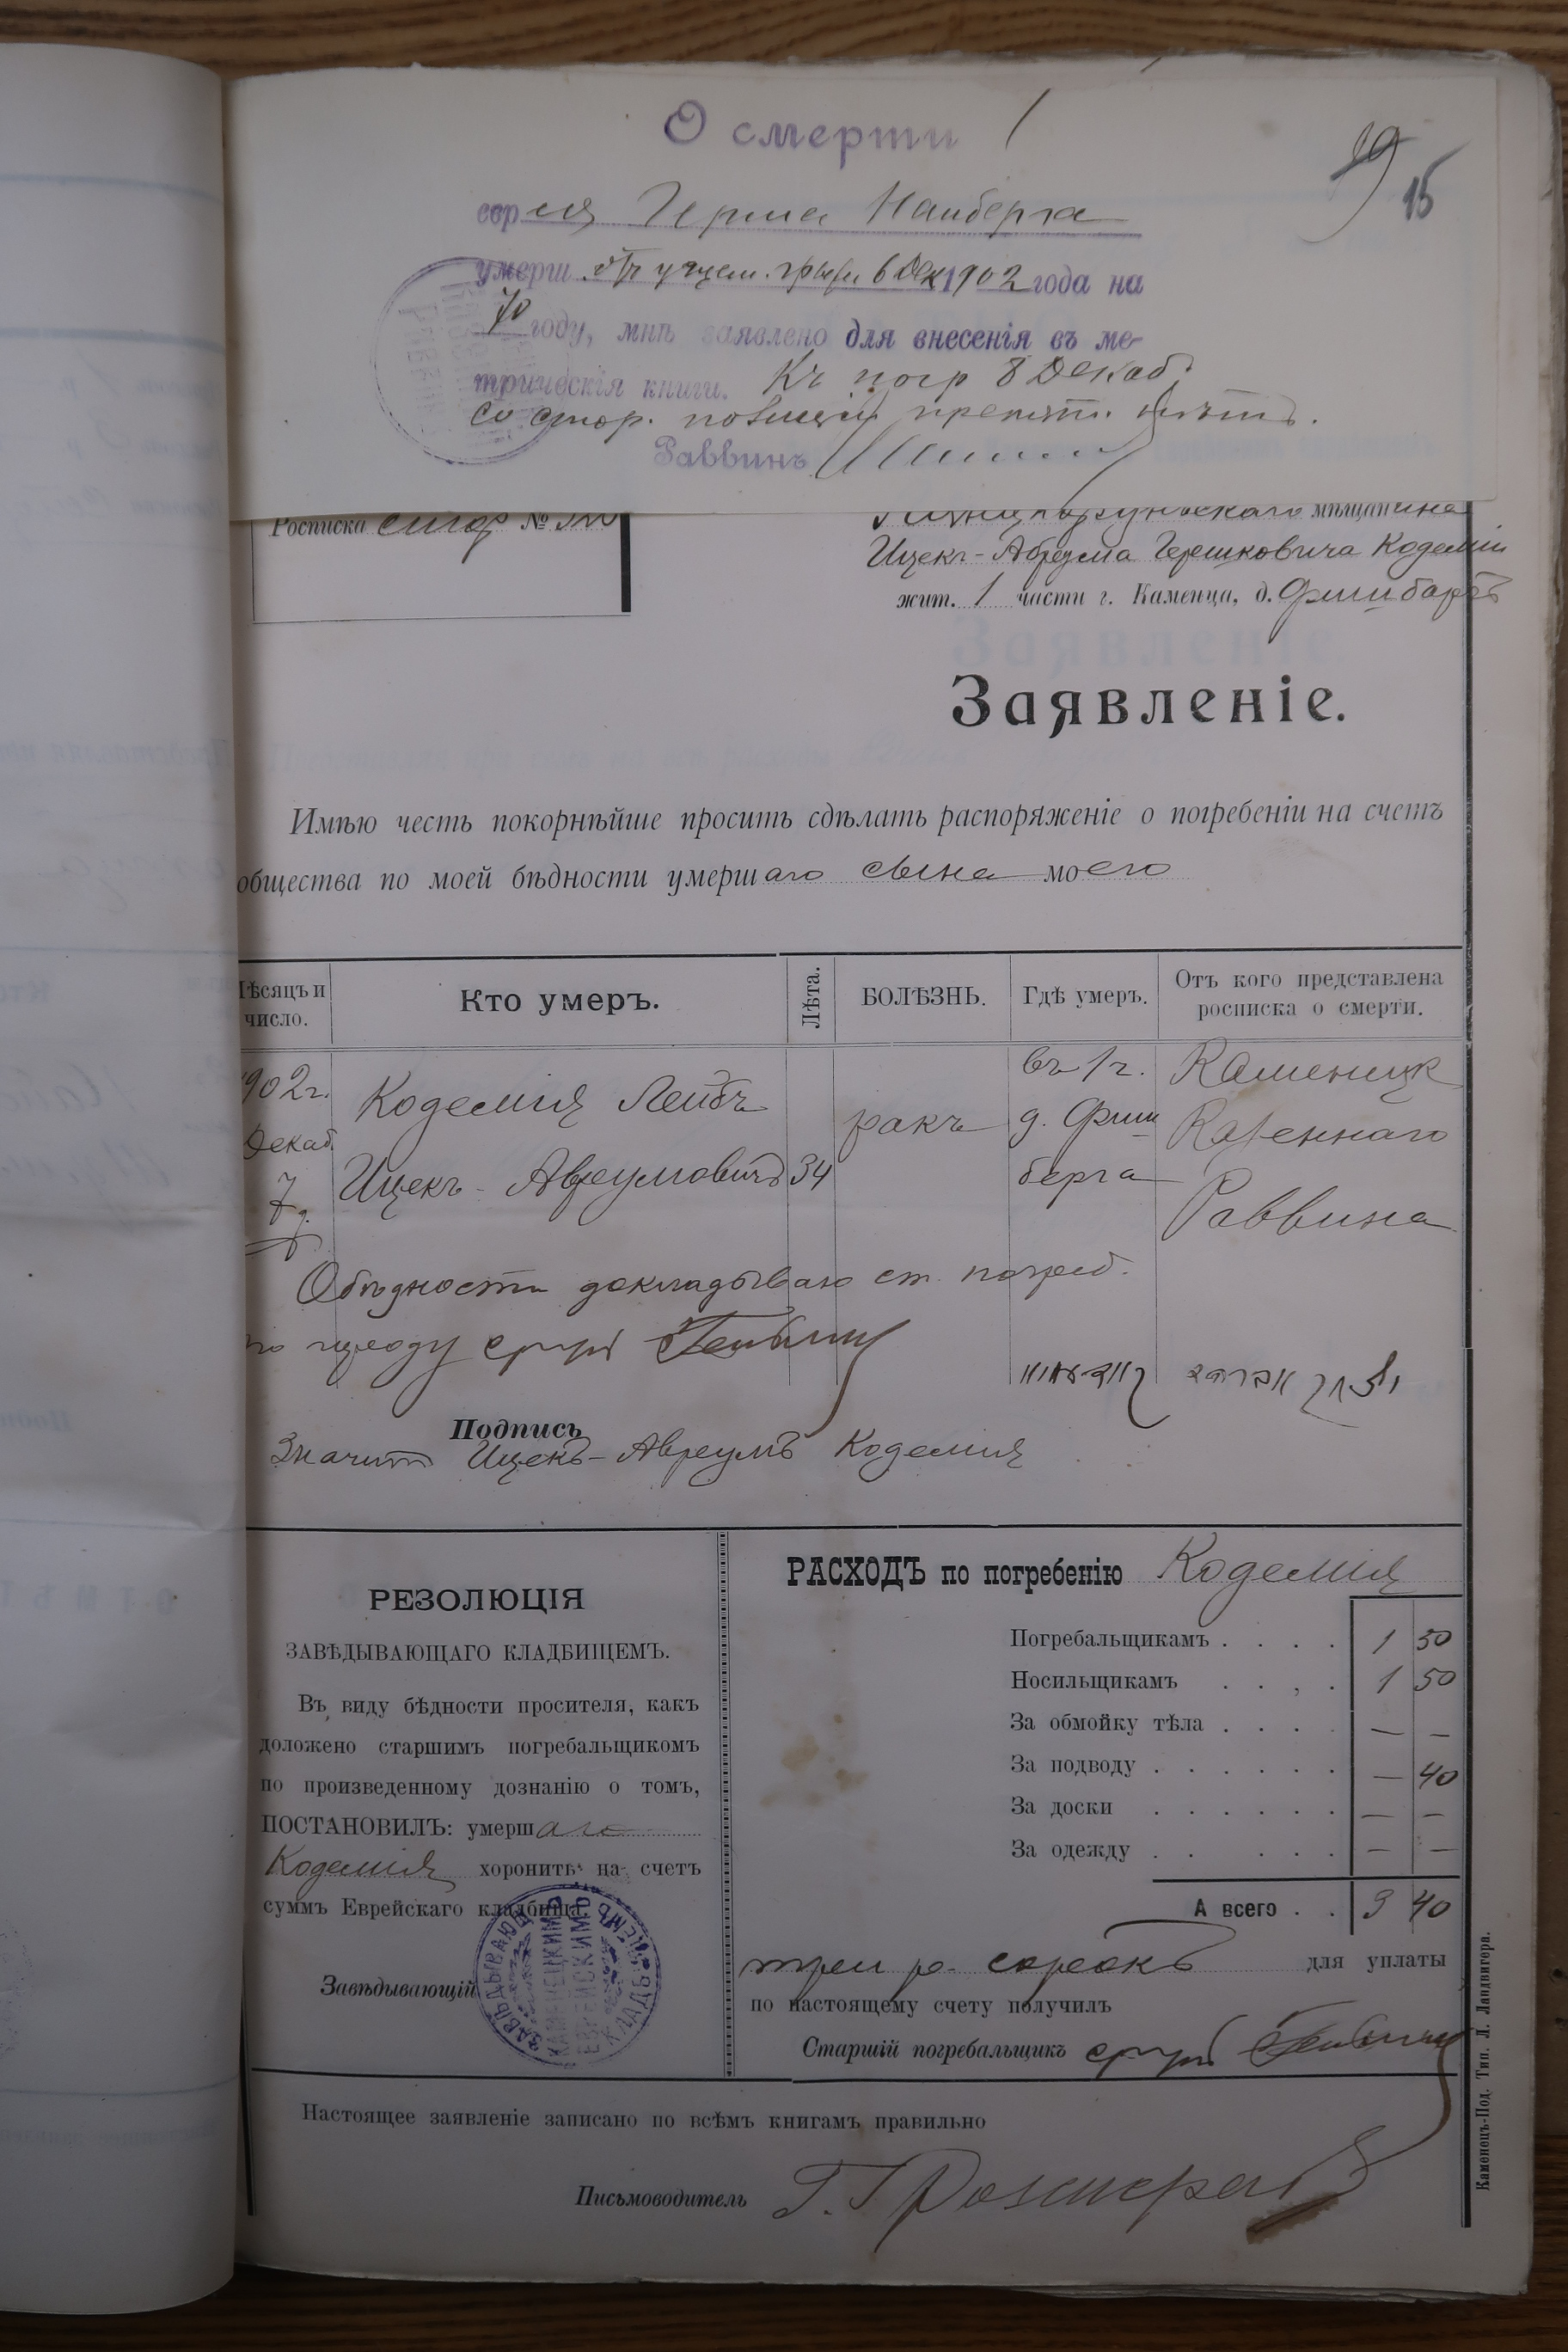 О смерти
19 15
Герша Нанберга
умерш отъ ущем. грыжи 6 Дек 1902 года на
70 году, мнѣ заявлено для внесенія въ ме-
трическія книги. Къ погр 8 Декаб.
со стор. полиціи препят. нѣтъ.
Раввинъ
Росписка №
мѣщанина
Ицекъ-Абрума Гершковича Кодемія
жит. 1 части г. Каменца, д. Фишбарга
Заявленіе.
Имѣю честь покорнѣйше просить сдѣлать распоряженіе о погребеніи на счетъ
общества по моей бѣдности умершаго сына моего
Мѣсяцъ и число. Кто умеръ. Лѣта. БОЛѢЗНЬ. Гдѣ умеръ. Отъ кого представлена росписка о смерти.
1902 г. Декаб. 7 д. Кодемія Лейбъ Ицекъ-Авреумовичъ 34 ракъ въ 1 ч. д. Фишберга Каменецк Казеннаго Раввина
О бѣдности докладываю ст. погреб.
Подпись
Значитъ Ицекъ-Авреумъ Кодемія
РЕЗОЛЮЦІЯ
ЗАВѢДЫВАЮЩАГО КЛАДБИЩЕМЪ.
Въ виду бѣдности просителя, какъ
доложено старшимъ погребальщикомъ
по произведенному дознанію о томъ,
ПОСТАНОВИЛЪ: умершаго
Кодемія хоронить на счетъ
суммъ Еврейскаго кладбища.
Завѣдывающій
ЗАВѢДЫВАЮЩ КАМЕНЕЦКИМЪ ЕВРЕЙСКИМЪ КЛАДБИЩЕМЪ
РАСХОДЪ по погребенію Кодемія
Погребальщикамъ . . . . 1 50
Носильщикамъ . . , . 1 50
За обмойку тѣла . . . . — —
За подводу . . . . . . — 40
За доски . . . . . . — —
За одежду . . . . . . — —
А всего . . 3 40
три р. сорокъ для уплаты
по настоящему счету получилъ
Старшій погребальщикъ
Настоящее заявленіе записано по всѣмъ книгамъ правильно
Письмоводитель
Каменецъ-Под. Тип. Л. Ландвигера.